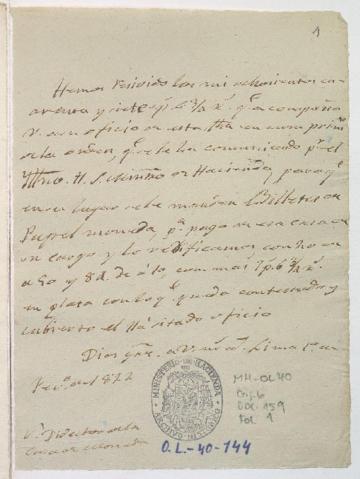 1
Hemos recivido los mil ochocientos cu
arenta y siete p.s 6 3/4 r.s q.e acompaño
V. con oficio de esta fha en cumplim.to
de la orden q.e le ha comunicado p.r el
Yltmo. H. S. Ministro de Hacienda, para q.e
en su lugar se le manden Billetes de
Papel moneda, p.a pago de esa casa de
su cargo y lo verificamos con
y 81 de con mas 1 p. 6 3/4 r.
en plata con lo q.e queda contestado y
cubierto el citado oficio
Dios gue. a V. m.s a.s Lima 1.o de
Feb.o de 1822
S.r Director de la
Casa de Moneda
MINISTERIO DE HACIENDA
ARCHIVO HISTORICO
MH-OL40
Caj. 6
DOC. 159
Fol. 1
O.L-40-144